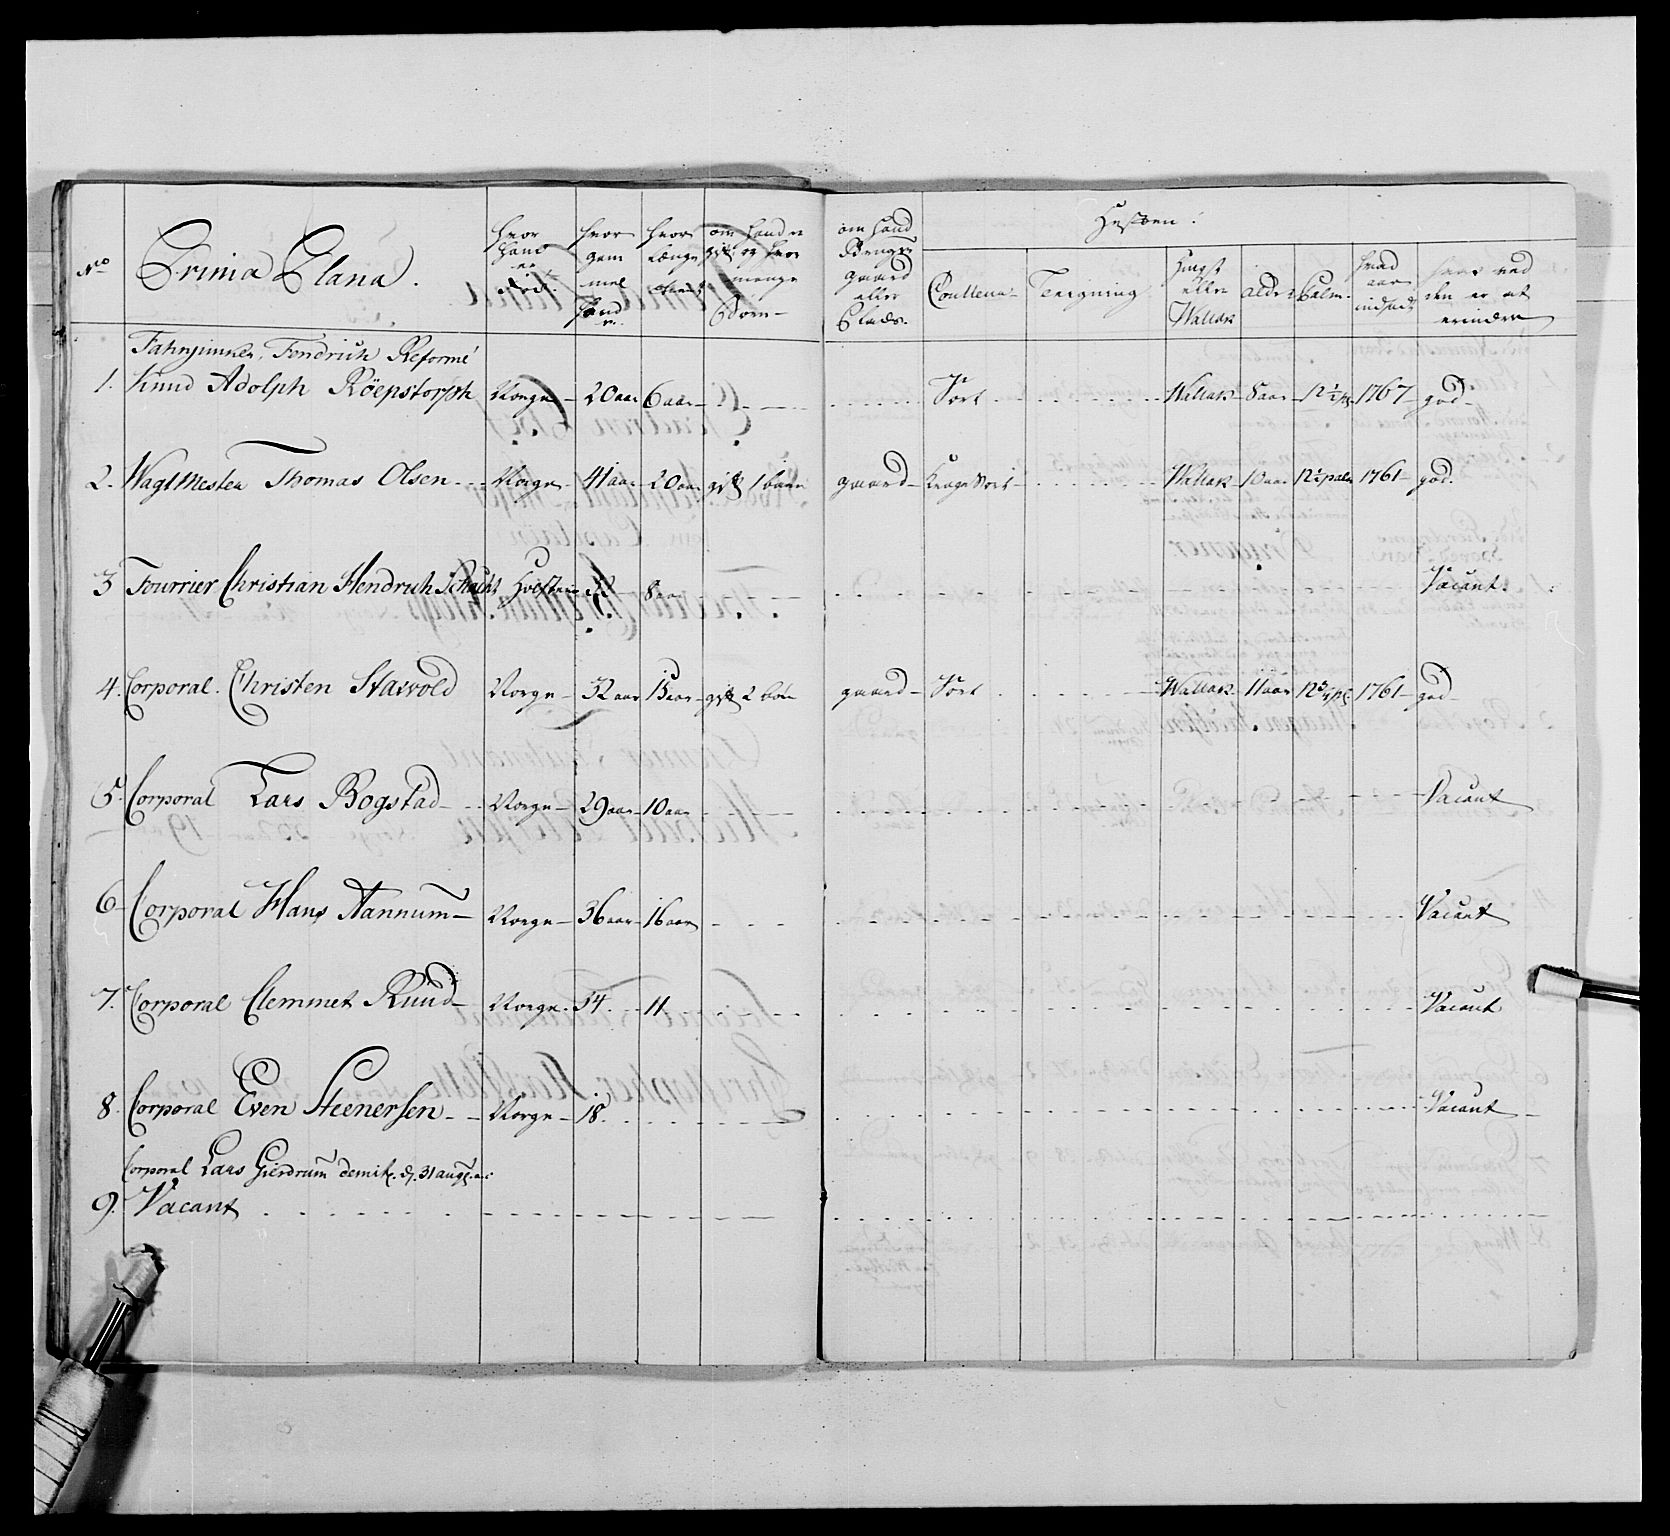 No Prima Plana. hvor hand er fød. hvor gam mel hand er hvor længe tient om hand er gift og hvor mange Børn om hand Bruger gaard eller Plads. Hesten:
Couleur Teigning Hingst eller Wallak alder Palm. hvad aar indsadt hvad ved den er at erindre
Fahnjunker Fendrich Reformé
1. Knud Adolph Röepstorph Norge 20 aar 6 aar Sort Wallak 8 aar 12½ p 1767 god
2. Wagtmester Thomas Olsen Norge 41 aar 20 aar gift 1 barn gaard Sort Wallak 10 aar 12½ palm 1761 god.
3 Fourrier Christian Hendrich Schacht Holsten 8 aar Vacant.
4. Corporal. Christen Stavvold Norge 32 aar 13 aar gift 2 børn gaard Sort Wallak 11 aar 1761 god
5. Corporal Lars Bogstad Norge 29 aar 10 aar Vacant
6 Corporal Hans Aannum Norge 36 aar 16 aar Vacant
7. Corporal Clemmet Ruud Norge 34 11 Vacant
8. Corporal Even Steenersen Norge 18 Vacant
Corporal Lars Gierdrum demit. d. 31 aug.
9. Vacant